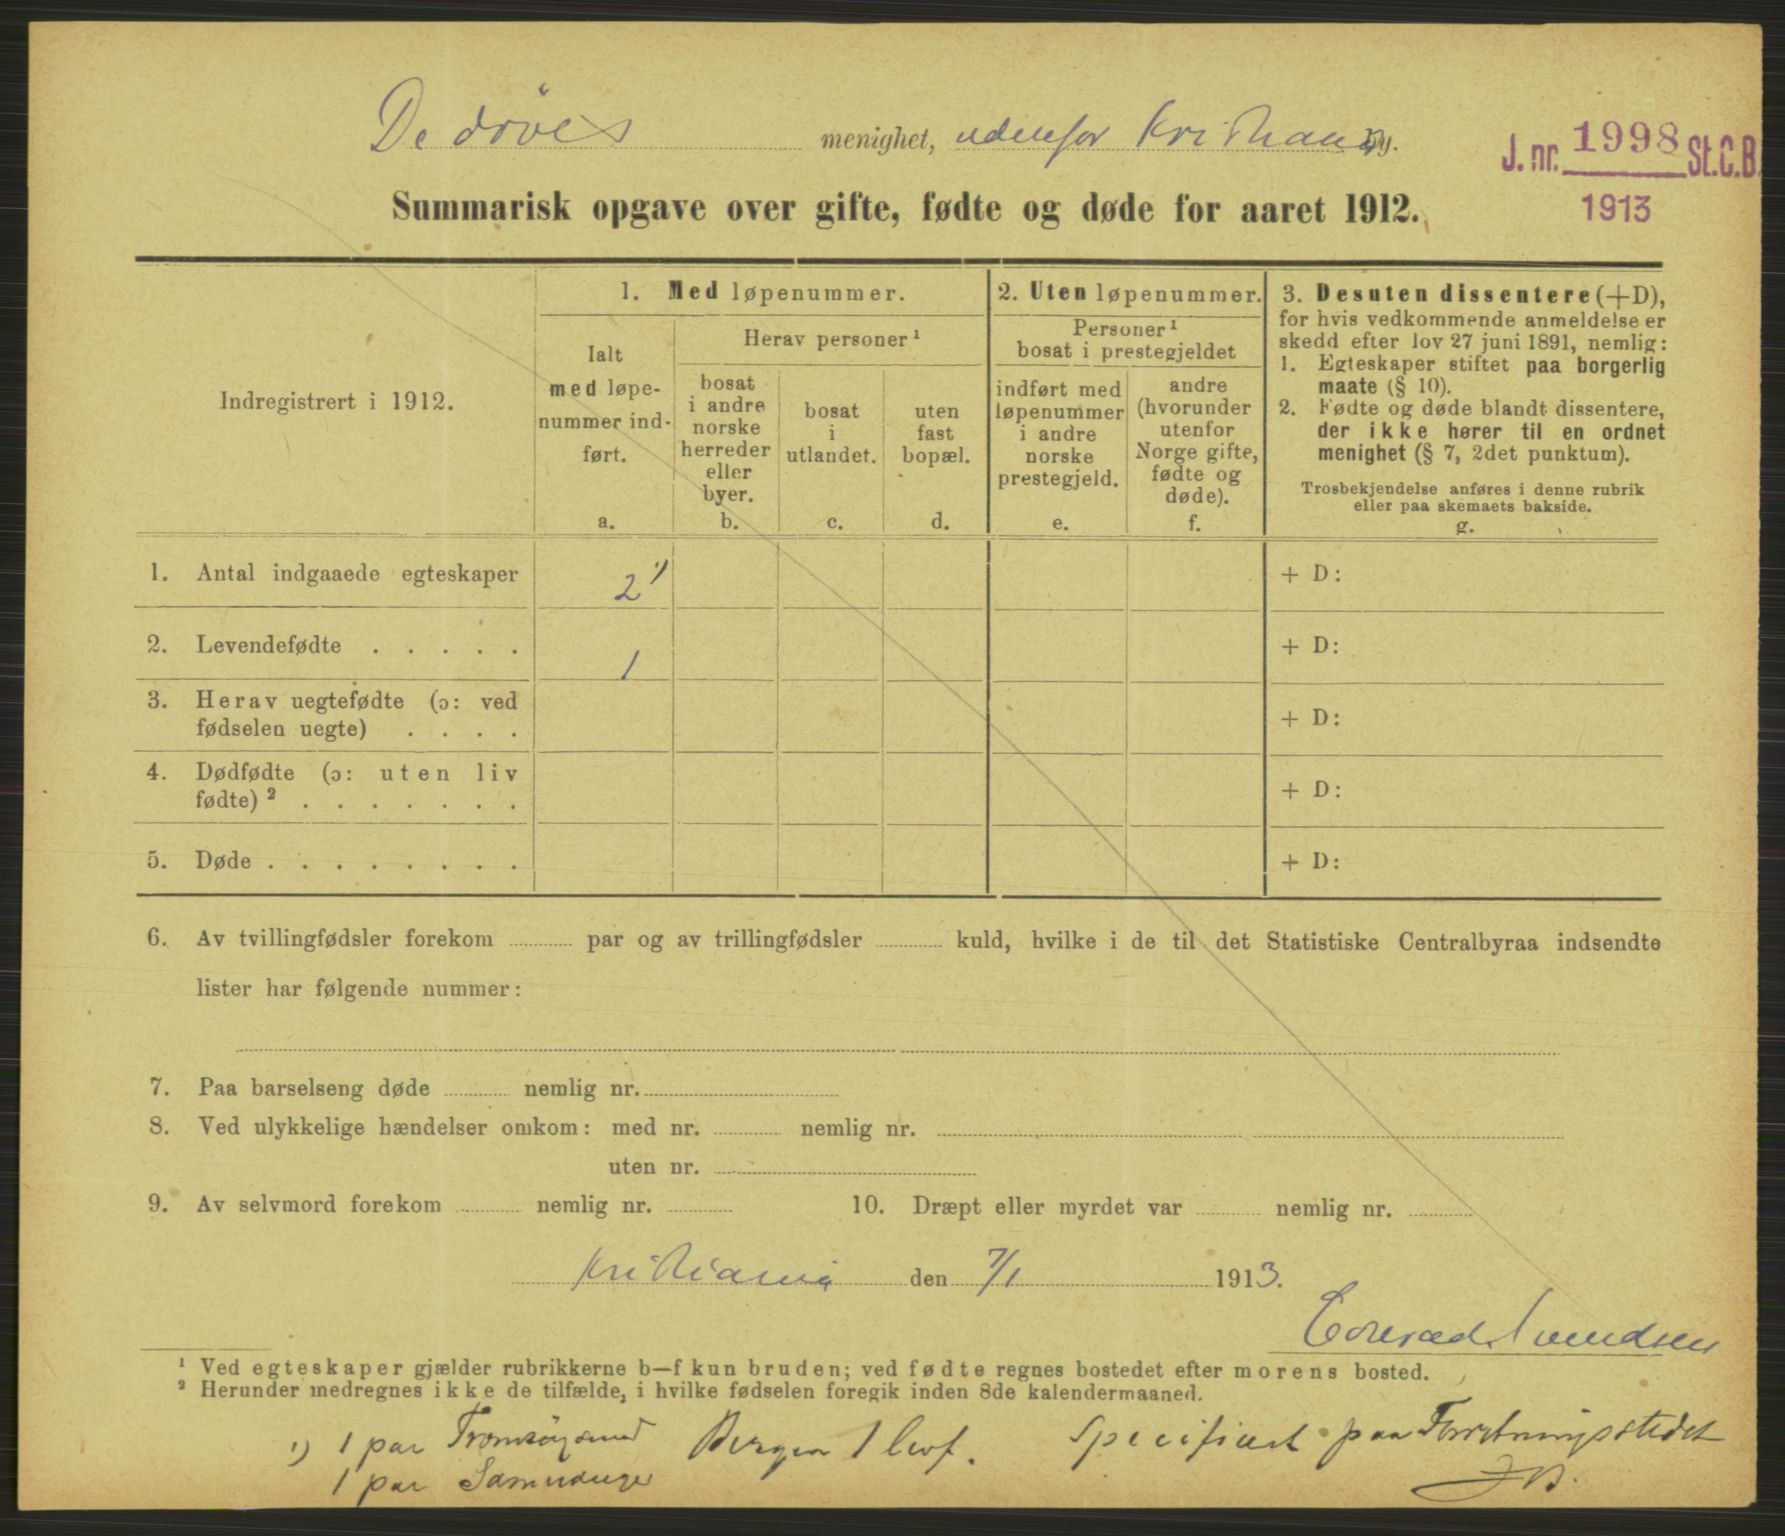 De døves menighet, udenfor Kristiania By.
J. nr. 1998 St.C.B.
1913
Summarisk opgave over gifte, fødte og døde for aaret 1912.
Indregistrert i 1912.
1. Med løpenummer.
Ialt
med løpe-
nummer ind-
ført.
a.
Herav personer ¹
bosat
i andre
norske
herreder
eller
byer.
b.
bosat
i
utlandet.
c.
uten
fast
bopæl.
d.
2. Uten løpenummer.
Personer ¹
bosat i prestegjeldet
indført med
løpenummer
i andre
norske
prestegjeld.
e.
andre
(hvorunder
utenfor
Norge gifte,
fødte og
døde).
f.
3. Desuten dissentere (+D),
for hvis vedkommende anmeldelse er
skedd efter lov 27 juni 1891, nemlig:
1. Egteskaper stiftet paa borgerlig
maate (§ 10).
2. Fødte og døde blandt dissentere,
der ikke hører til en ordnet
menighet (§ 7, 2det punktum).
Trosbekjendelse anføres i denne rubrik
eller paa skemaets bakside.
g.
1. Antal indgaaede egteskaper 2 ¹) + D:
2. Levendefødte . . . . . 1 + D:
3. Herav uegtefødte (ɔ: ved
fødselen uegte) . . . . + D:
4. Dødfødte (ɔ: uten liv
fødte) ² . . . . . . . + D:
5. Døde . . . . . . . . + D:
6. Av tvillingfødsler forekom par og av trillingfødsler kuld, hvilke i de til det Statistiske Centralbyraa indsendte
lister har følgende nummer:
7. Paa barselseng døde nemlig nr.
8. Ved ulykkelige hændelser omkom: med nr. nemlig nr.
uten nr.
9. Av selvmord forekom nemlig nr. 10. Dræpt eller myrdet var nemlig nr.
Kristiania den 7/1 1913.
Conrad Svendsen
¹ Ved egteskaper gjælder rubrikkerne b—f kun bruden; ved fødte regnes bostedet efter morens bosted.
² Herunder medregnes ikke de tilfælde, i hvilke fødselen foregik inden 8de kalendermaaned.
1) 1 par Tromsøysund Bergen 1 Specificert paa Forretningsstedet
1 par JB.